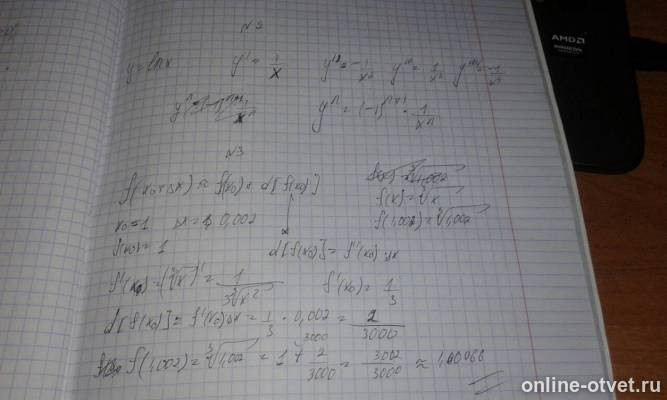 N 2
y = ln x    y' = 1/x    y'' = -1/x²    y''' = 1/x³    y'''' = -1/x⁴
yⁿ = (-1)ⁿ⁺¹ · 1/xⁿ
N 3
f(x₀+Δx) ≈ f(x₀) + d[f(x₀)]
f(x) = ³√x
x₀ = 1    Δx = 0,002    f(1,002) = ³√1,002
f(x₀) = 1    d[f(x₀)] = f'(x₀) Δx
f'(x₀) = (³√x)' = 1/(3 ³√x²)    f'(x₀) = 1/3
d[f(x₀)] = f'(x₀) Δx = 1/3 · 0,002 = 2/3000
f(1,002) = ³√1,002 = 1 + 2/3000 = 3002/3000 ≈ 1,00066
AMD
online-otvet.ru